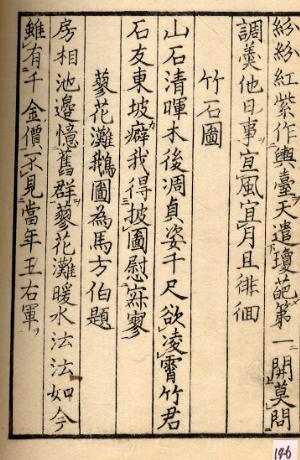 紛紛紅紫作輿臺天遣瓊葩第一開莫問
調羹他日事宜風宜月且徘徊
竹石圖
山石清暉木後凋貞姿千尺欲凌霄竹君
石友東坡癖我得披圖慰寂寥
蓼花灘鵝圖為馬方伯題
房相池邊憶舊群蓼花灘暖水法法如今
雖有千金價不見當年王右軍
146